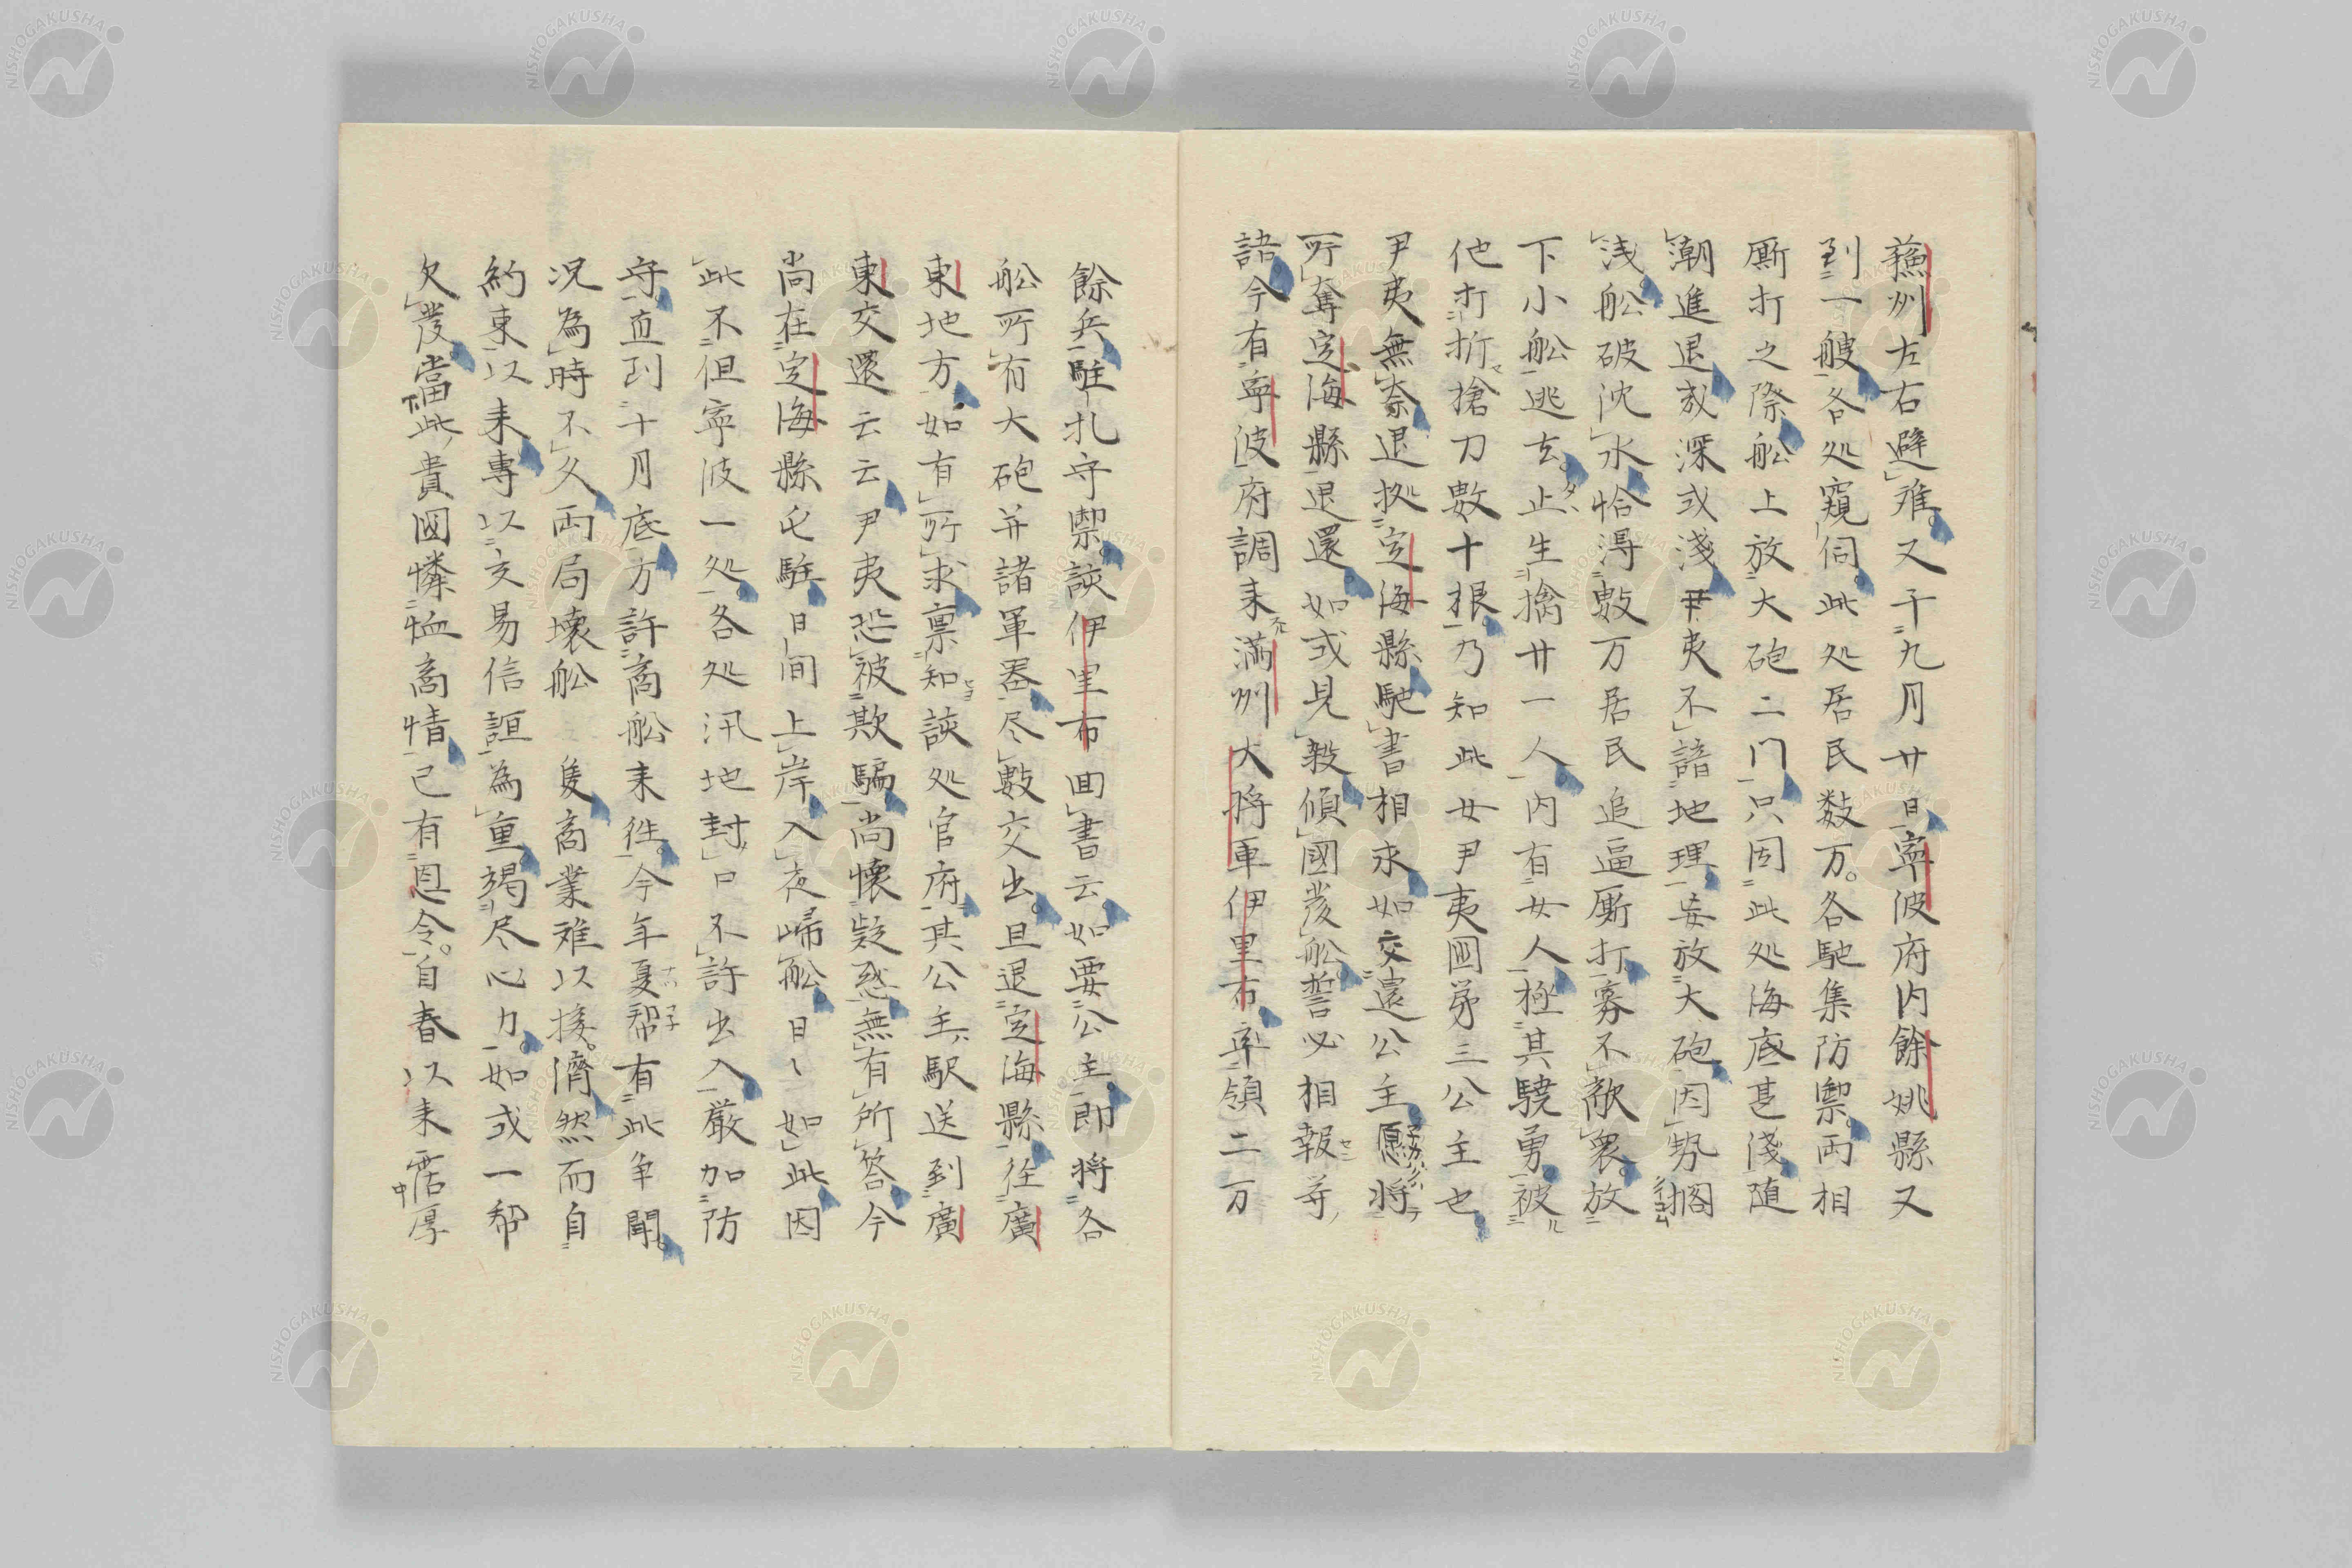 蘓州左右避难又于九月廿日寧波府内餘姚縣又
到一艘各処窺伺此処居民数万各馳集防禦両相
厮打之際舩上放大砲二门只因此処海底甚淺随
潮進退或深或淺尹夷不諳地理妄放大砲因势擱
浅舩破沈水恰淂數万居民追逼厮打寡不敵衆放
下小舩逃去止生擒廿一人内有女人極其驍勇被
他打折搶刀數十根乃知此女尹夷國第三公主也
尹夷無奈退拠定海縣馳書相求如交還公主愿將
所奪定海縣退還如或見殺傾國發舩誓必相報等
諸今有寧波府調来满州大將軍伊里布率領二万
餘兵駐扎守禦談伊里布回書云如要公主即將各
舩所有大砲并諸軍器尽數交出且退定海縣往廣
東地方如有所求禀知談処官府其公主駅送到廣
東交還云云尹夷恐被欺騙尚懐疑惑無有所答今
尚在定海縣屯駐日间上岸入夜歸舩日々如此因
此不但寧波一処各処汛地封口不許出入厳加防
守直到十月底方許商舩来徃今年夏幇有此争鬧
况為時不久両局壊舩 隻商業难以接濟然而自
約束以来專以交易信誼為重竭尽心力如或一幇
欠發當此貴國憐恤商情已有恩令自春以来霑厚